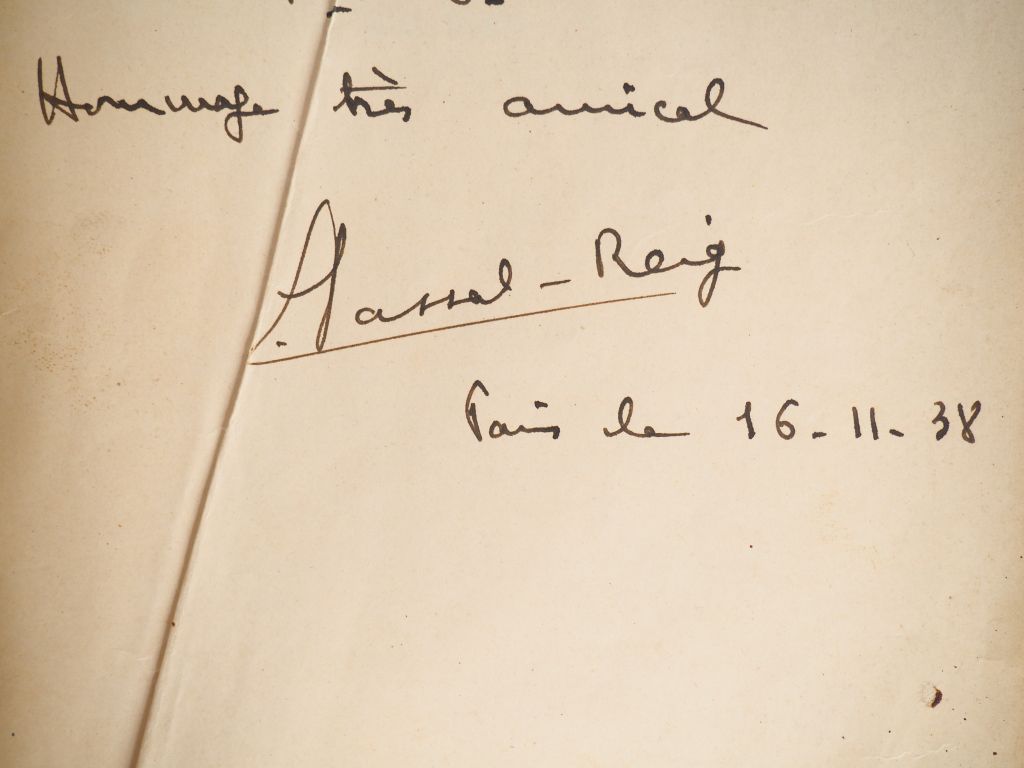 Hommage très amical
Massal-Reig
Paris le 16-11-38